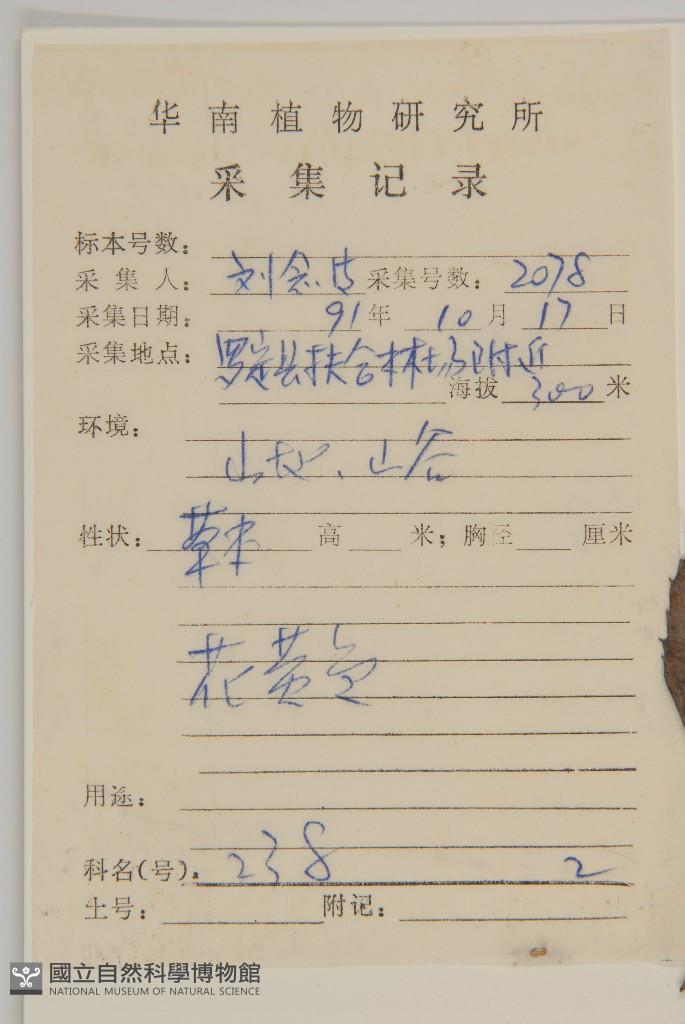 华南植物研究所
采集记录
标本号数：
采集人：刘念 采集号数：2078
采集日期：91年10月17日
采集地点：罗定县扶合林场附近
海拔 300 米
环境：
山坡、山谷
性状：草本 高 米；胸径 厘米
花黄色
用途：
科名(号)：238 2
土号： 附记：
國立自然科學博物館
NATIONAL MUSEUM OF NATURAL SCIENCE